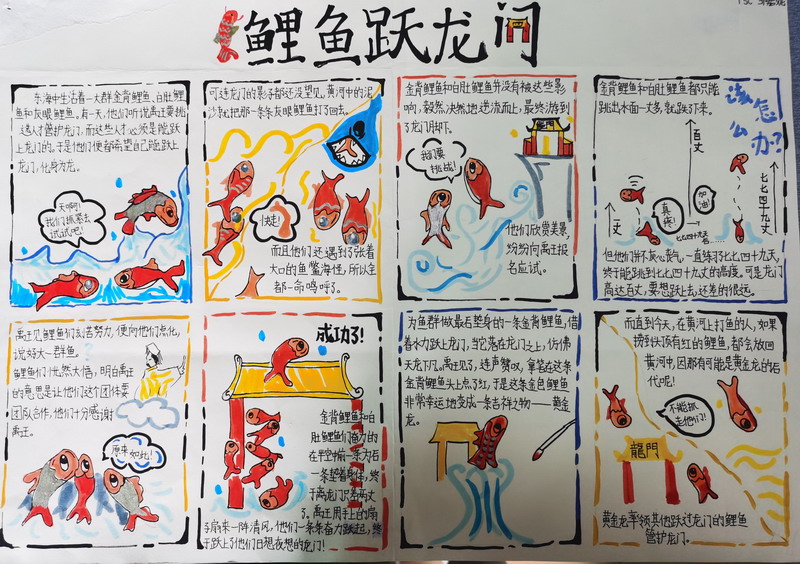 鲤鱼跃龙门
东海中生活着一大群金背鲤鱼、白肚鲤
鱼和灰眼鲤鱼。有一天,他们听说禹王要挑
选人才管护龙门,而这些人才必须是能跃
上龙门的。于是他们便都希望自己能跃上
龙门,化身为龙。
天啊!
我们抓紧去
试试吧!
可连龙门的影子都还没望见,黄河中的泥
沙就把那一条条灰眼鲤鱼打了回去。
快走!
而且他们还遇到了张着
大口的鱼鳖海怪,所以全
都一命呜呼了。
金背鲤鱼和白肚鲤鱼并没有被这些影
响,毅然决然地逆流而上,最终游到
了龙门脚下。
龍門
我们要
挑战!
他们欣赏美景,
纷纷向禹王报
名应试。
金背鲤鱼和白肚鲤鱼都只能
跳出水面一丈多,就跌下来。
该怎
么办?
百丈
一丈
真疼!
加油!
七七四十九天……
七七四十九丈
但他们并不灰心丧气,一直练了七七四十九天,
终于能跳到七七四十九丈的高度。可是龙门
高达百丈,要想跃上去,还差的很远。
禹王见鲤鱼们刻苦努力,便向他们点化,
说好大一群鱼。
鲤鱼们恍然大悟,明白禹王
的意思是让他们这个团体要
团队合作,他们十分感谢
禹王。
原来如此!
成功了!
金背鲤鱼和白
肚鲤鱼们奋力的
在半空中前一条为后
一条垫着身体,终
于离龙门只差两丈
了。禹王用手上的扇
子扇来一阵清风,他们一条条奋力跃起,终
于跃上了他们日想夜想的龙门!
为鱼群做最后垫身的一条金背鲤鱼,借
着水力跃上龙门,当它落在龙门之上,仿佛
天龙下凡。禹王见了,连声赞叹,拿笔在这条
金背鲤鱼头上点了红,于是这条金色鲤鱼
非常幸运地变成一条吉祥之物——黄金
龙。
而直到今天,在黄河上打鱼的人,如果
捞到头顶有红的鲤鱼,都会放回
黄河中,因那有可能是黄金龙的后
代呢!
不能抓
走他们!
龍門
黄金龙率领其他跃过龙门的鲤鱼
管护龙门。